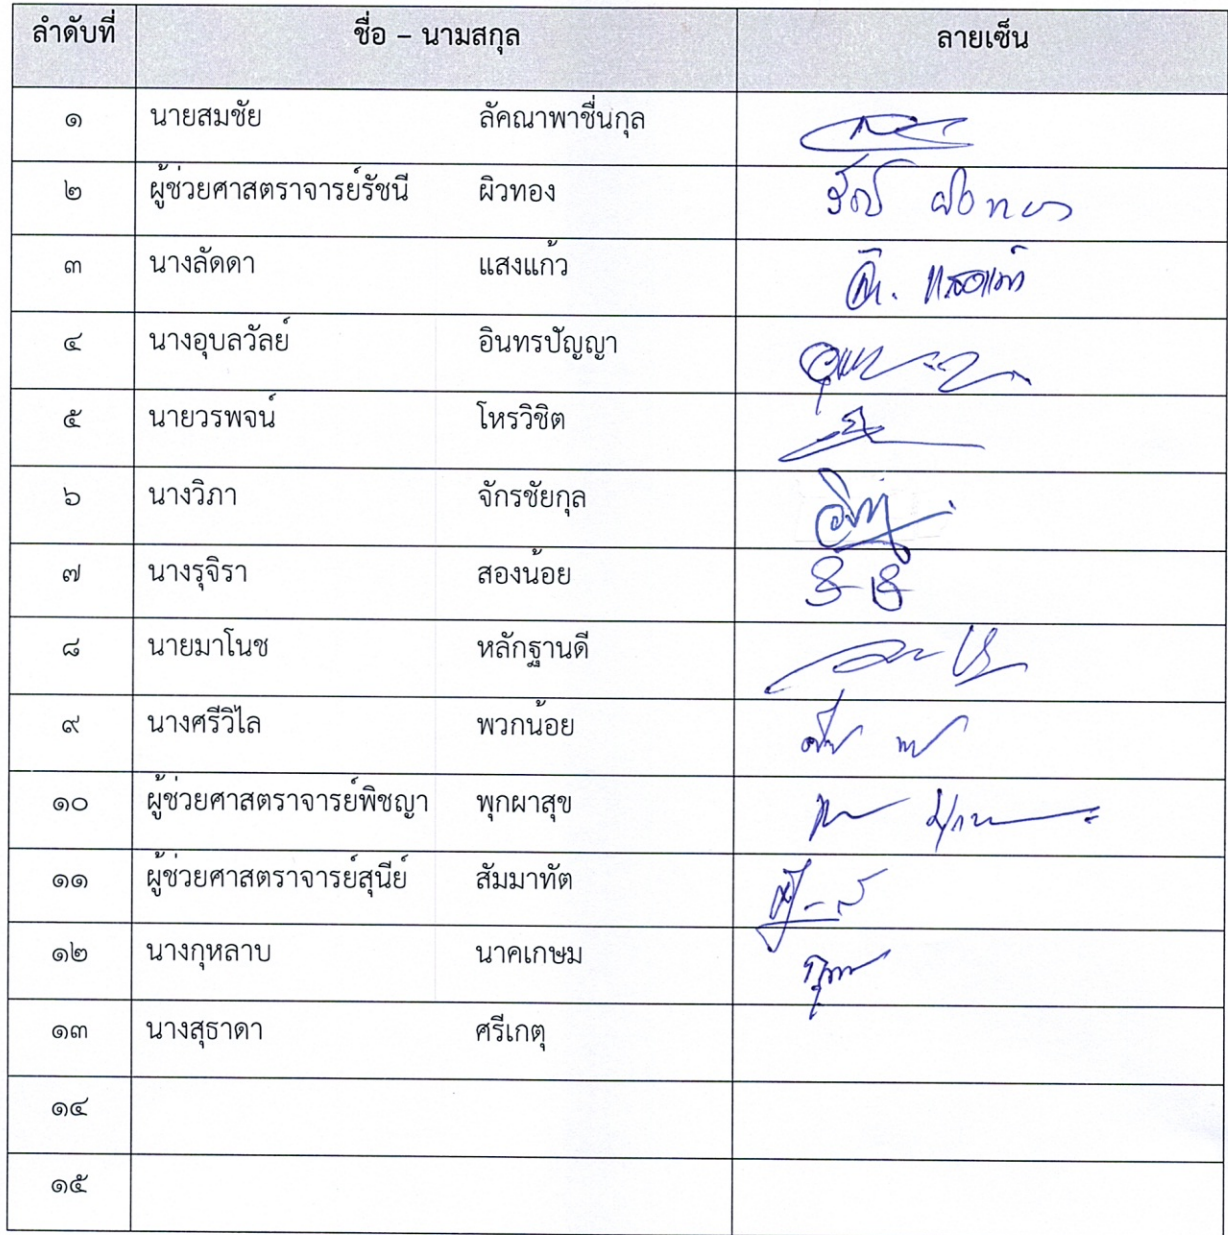 ลำดับที่ ชื่อ – นามสกุล ลายเซ็น
๑ นายสมชัย ลัคณาพาชื่นกุล
๒ ผู้ช่วยศาสตราจารย์รัชนี ผิวทอง
๓ นางลัดดา แสงแก้ว
๔ นางอุบลวัลย์ อินทรปัญญา
๕ นายวรพจน์ โหรวิชิต
๖ นางวิภา จักรชัยกุล
๗ นางรุจิรา สองน้อย
๘ นายมาโนช หลักฐานดี
๙ นางศรีวิไล พวกน้อย
๑๐ ผู้ช่วยศาสตราจารย์พิชญา พุกผาสุข
๑๑ ผู้ช่วยศาสตราจารย์สุนีย์ สัมมาทัต
๑๒ นางกุหลาบ นาคเกษม
๑๓ นางสุธาดา ศรีเกตุ
๑๔
๑๕